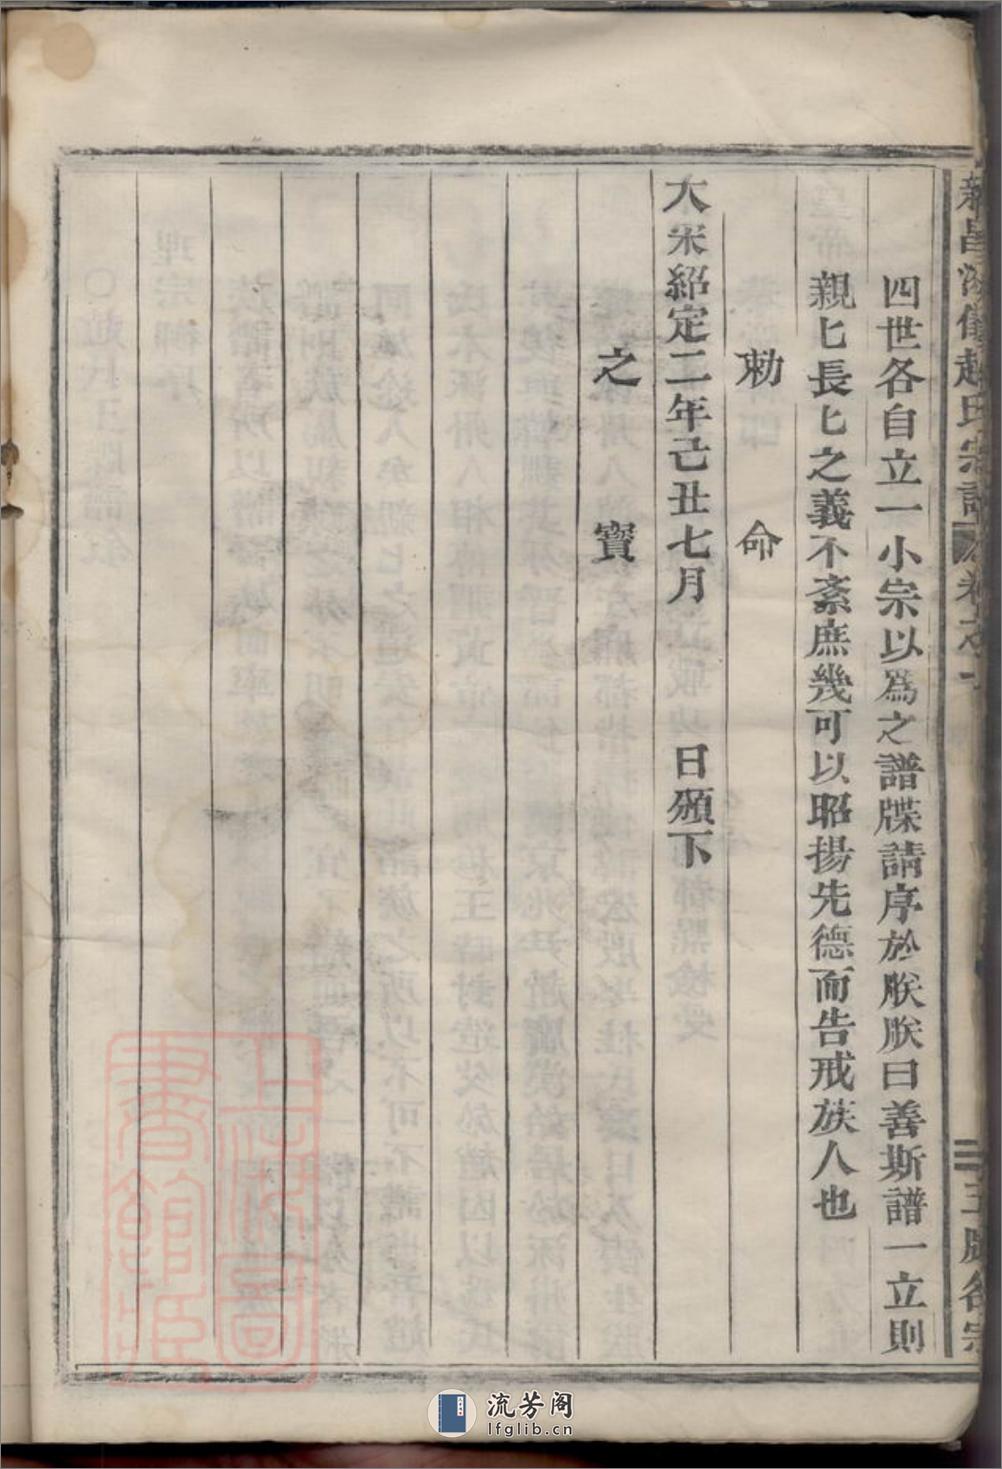 四世各自立一小宗以爲之譜牒請序於朕朕曰善斯譜一立則
親匕長匕之義不紊庶幾可以昭揚先德而告戒族人也
勅命
大宋紹定二年己丑七月 日頒下
之寶
上海圖書館藏
流芳阁
lfglib.cn